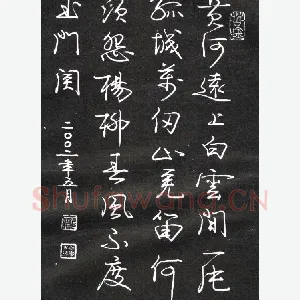 黄河遠上白雲間一片
孤城萬仞山羌笛何
須怨楊柳春風不度
玉門関
二〇〇二年五月
Shufawang.CN